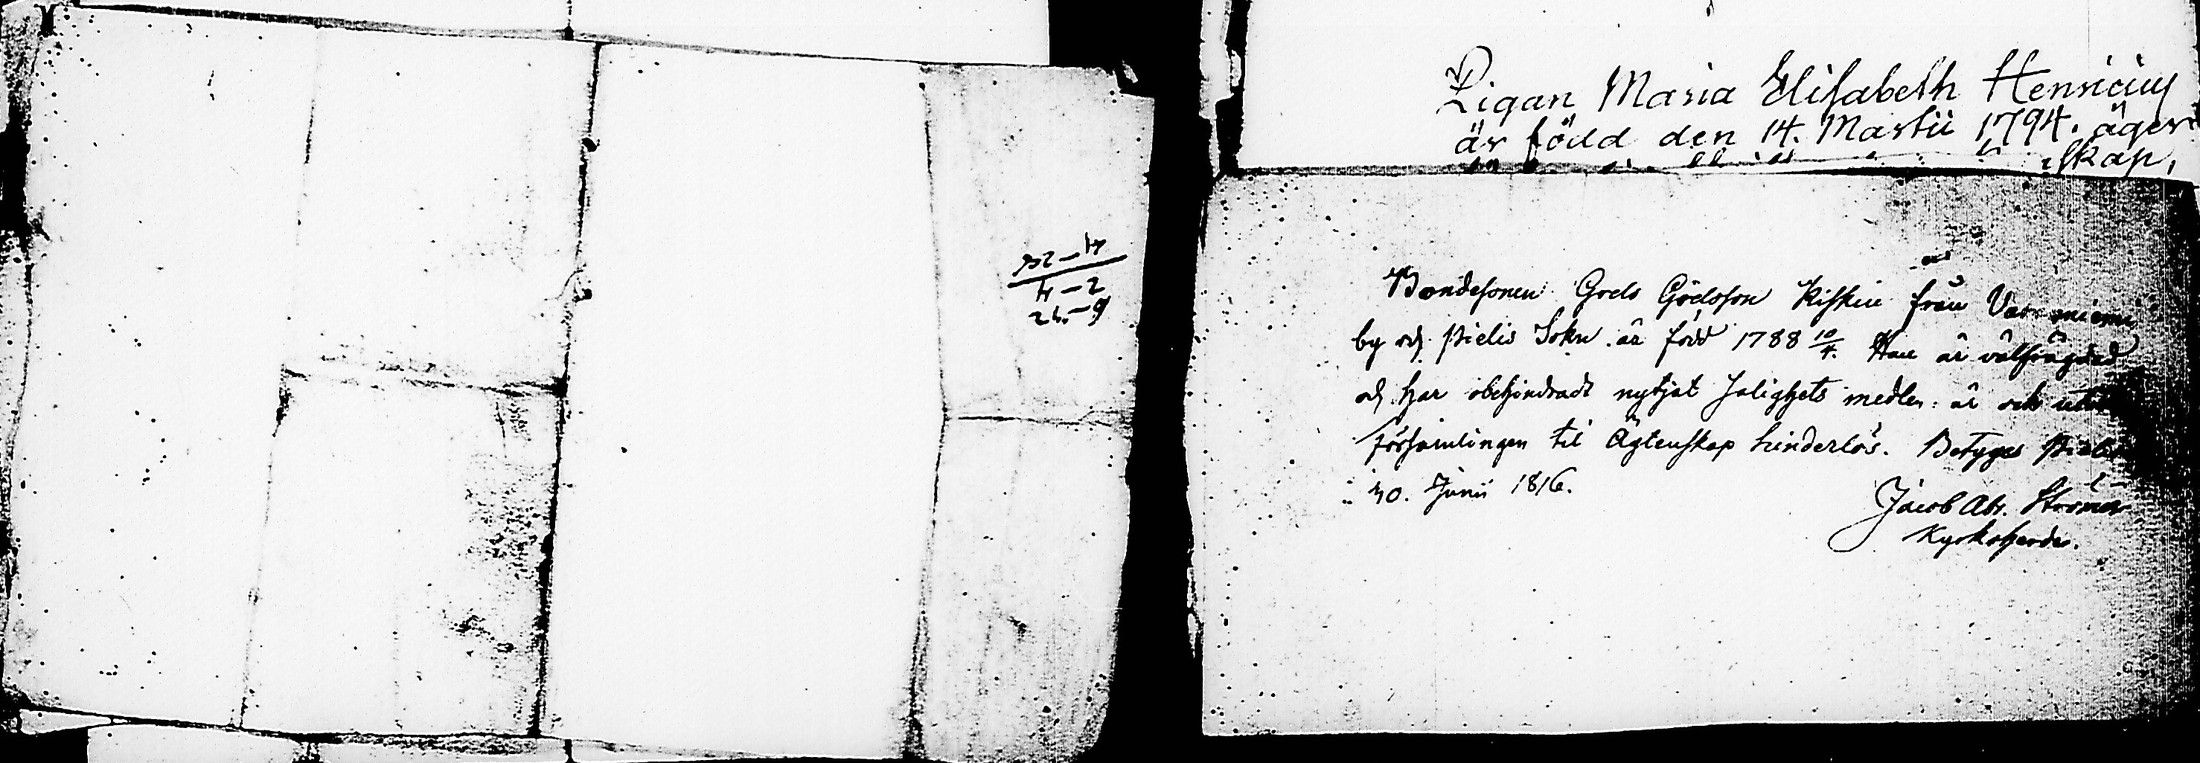 Pigan Maria Elisabeth Henriciuς
är född den 14. Martii 1794. äger
skap,
Bondesonen Grels Grelsson Kiiskin från
by och Pielis Sokn är född 1788 10/4. Han är välfrägdad
och har obehindradt nyttjat salighets medlen: är och utur
församlingen til Ägtenskap hinderlös. Betygas Pielis
30. Junii 1816.
Jacob Abr. Strömer
Kyrkoherde.